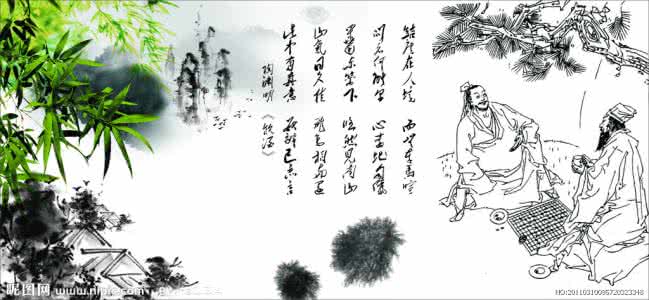 結廬在人境 而無車馬喧
問君何能爾 心遠地自偏
采菊東篱下 悠然見南山
山氣日夕佳 飛鳥相與還
此中有真意 欲辨已忘言
陶渊明 《饮酒》
昵图网 www.nipic.com
NO:20110310095720323348